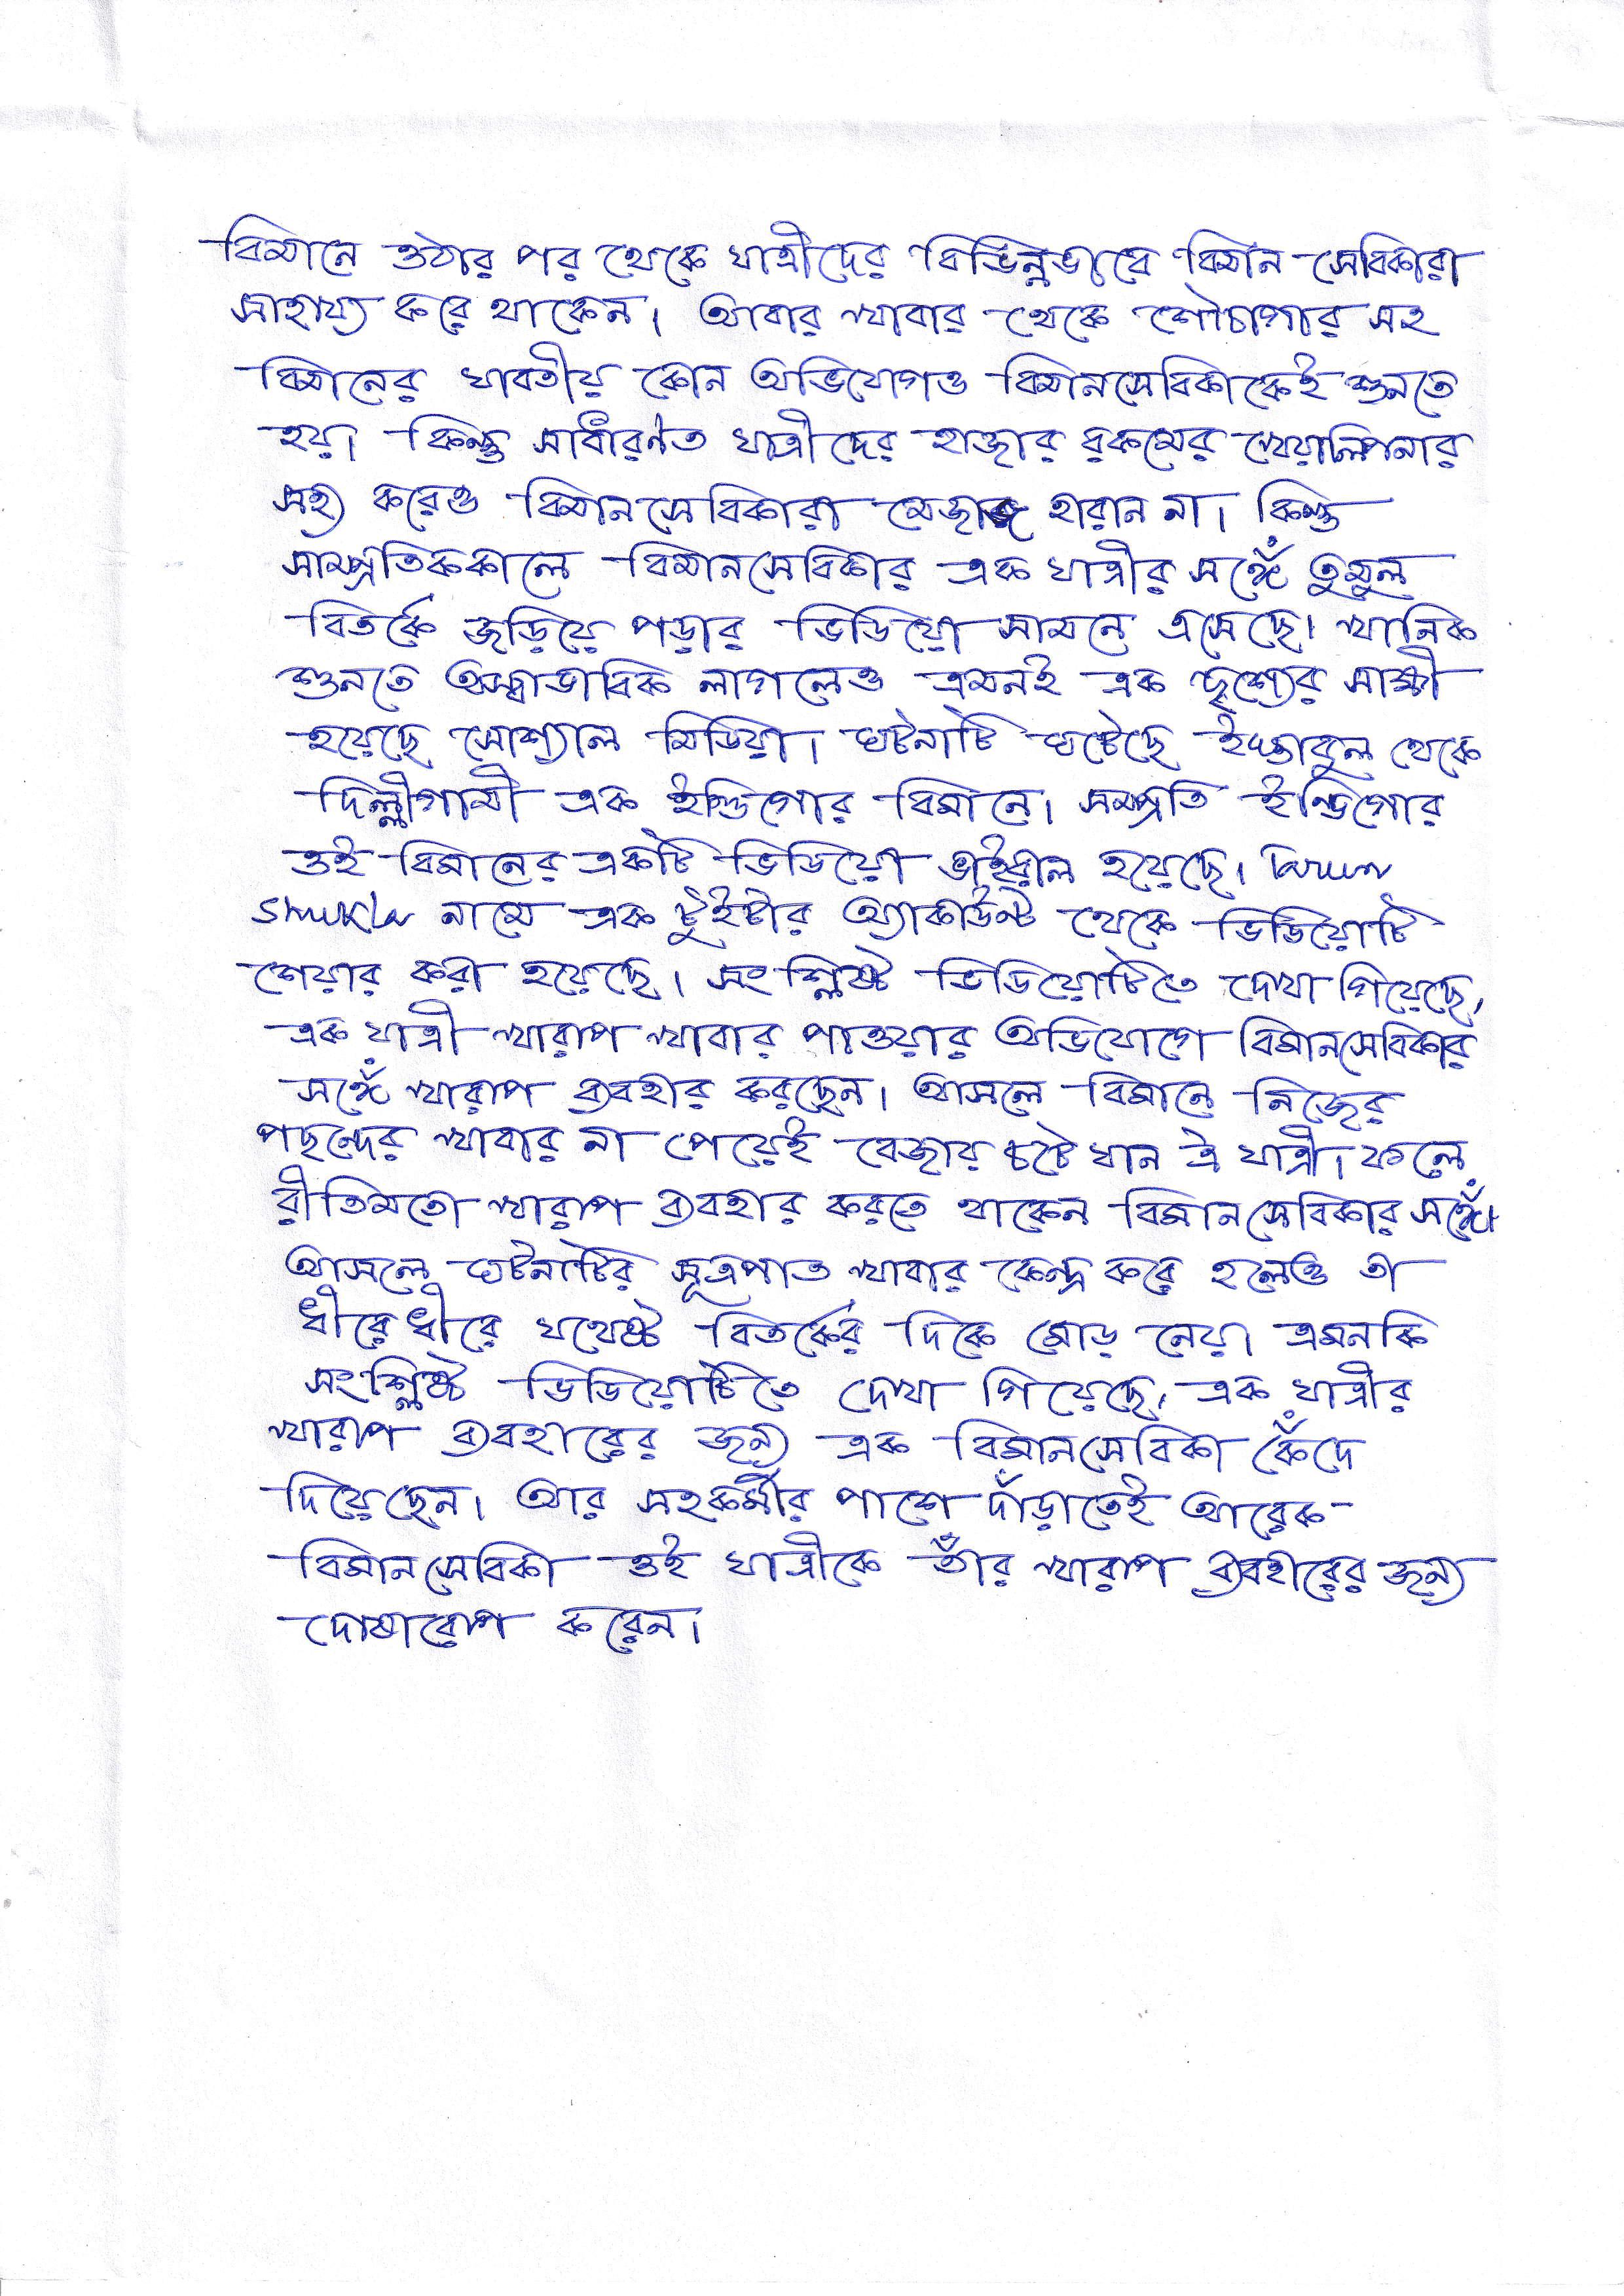 বিমানে ওঠার পর থেকে যাত্রীদের বিভিন্নভাবে বিমান সেবিকারা
সাহায্য করে থাকেন। আবার খাবার থেকে শৌচাগার সহ
বিমানের যাবতীয় কোন অভিযোগও বিমানসেবিকাকেই শুনতে
হয়। কিন্তু সাধারণত যাত্রীদের হাজার রকমের খেয়ালিপনার
সহ্য করেও বিমানসেবিকারা মেজাজ হারান না। কিন্তু
সাম্প্রতিককালে বিমানসেবিকার এক যাত্রীর সঙ্গেঁ তুমুল
বিতর্কে জড়িয়ে পড়ার ভিডিয়ো সামনে এসেছে। খানিক
শুনতে অস্বাভাবিক লাগলেও এমনই এক দৃশ্যের সাক্ষী
হয়েছে সোশ্যাল মিডিয়া। ঘটনাটি ঘটেছে ইস্তাবুল থেকে
দিল্লীগামী এক ইন্ডিগোর বিমানে। সম্প্রতি ইন্ডিগোর
ওই বিমানের একটি ভিডিয়ো ভাইরাল হয়েছে। Tarun
Shukla নামে এক টুইটার অ্যাকাউন্ট থেকে ভিডিয়োটি
শেয়ার করা হয়েছে। সংশ্লিষ্ট ভিডিয়োটিতে দেখা গিয়েছে,
এক যাত্রী খারাপ খাবার পাওয়ার অভিযোগে বিমানসেবিকার
সঙ্গেঁ খারাপ ব্যবহার করছেন। আসলে বিমানে নিজের
পছন্দের খাবার না পেয়েই বেজায় চটে যান ঐ যাত্রী। ফলে
রীতিমতো খারাপ ব্যবহার করতে থাকেন বিমানসেবিকার সঙ্গেঁ।
আসলে ঘটনাটির সূত্রপাত খাবার কেন্দ্র করে হলেও তা
ধীরে ধীরে যথেষ্ট বিতর্কের দিকে মোড় নেয়। এমনকি
সংশ্লিষ্ট ভিডিয়োটিতে দেখা গিয়েছে, এক যাত্রীর
খারাপ ব্যবহারের জন্য এক বিমানসেবিকা কেঁদে
দিয়েছেন। আর সহকর্মীর পাশে দাঁড়াতেই আরেক
বিমানসেবিকা ওই যাত্রীকে তাঁর খারাপ ব্যবহারের জন্য
দোষারোপ করেন।